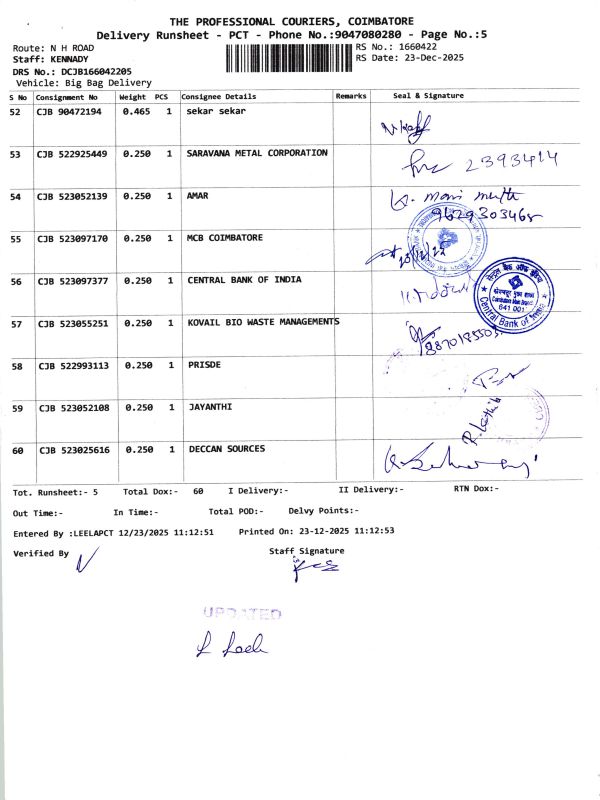 THE PROFESSIONAL COURIERS, COIMBATORE
Delivery Runsheet - PCT - Phone No.:9047080280 - Page No.:5
Route: N H ROAD
RS No.: 1660422
Staff: KENNADY
RS Date: 23-Dec-2025
DRS No.: DCJB166042205
Vehicle: Big Bag Delivery
S No Consignment No Weight PCS Consignee Details Remarks Seal & Signature
52 CJB 90472194 0.465 1 sekar sekar
53 CJB 522925449 0.250 1 SARAVANA METAL CORPORATION 2393414
54 CJB 523052139 0.250 1 AMAR
9629303468
55 CJB 523097170 0.250 1 MCB COIMBATORE
56 CJB 523097377 0.250 1 CENTRAL BANK OF INDIA
सेन्ट्रल बैंक ऑफ इंडिया
641 001
Central Bank of India
57 CJB 523055251 0.250 1 KOVAIL BIO WASTE MANAGEMENTS
58 CJB 522993113 0.250 1 PRISDE
59 CJB 523052108 0.250 1 JAYANTHI
60 CJB 523025616 0.250 1 DECCAN SOURCES
Tot. Runsheet:- 5 Total Dox:- 60 I Delivery:- II Delivery:- RTN Dox:-
Out Time:- In Time:- Total POD:- Delvy Points:-
Entered By :LEELAPCT 12/23/2025 11:12:51 Printed On: 23-12-2025 11:12:53
Verified By Staff Signature
UPDATED